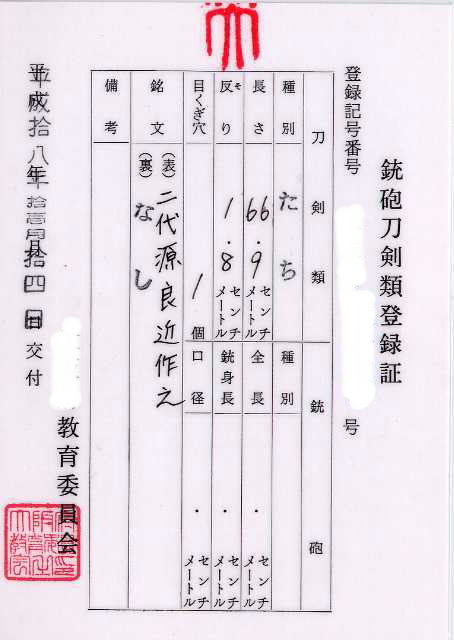 銃砲刀剣類登録証
登録記号番号
号
刀剣類
銃砲
種別
たち
種別
長さ
66.9
センチメートル
全長
.
センチメートル
反り
そ
1.8
センチメートル
銃身長
.
センチメートル
目くぎ穴
1
個
口径
.
センチメートル
銘文
(表)
二代源良近作之
(裏)
なし
備考
平成拾八年拾壱月拾四日交付
教育委員会